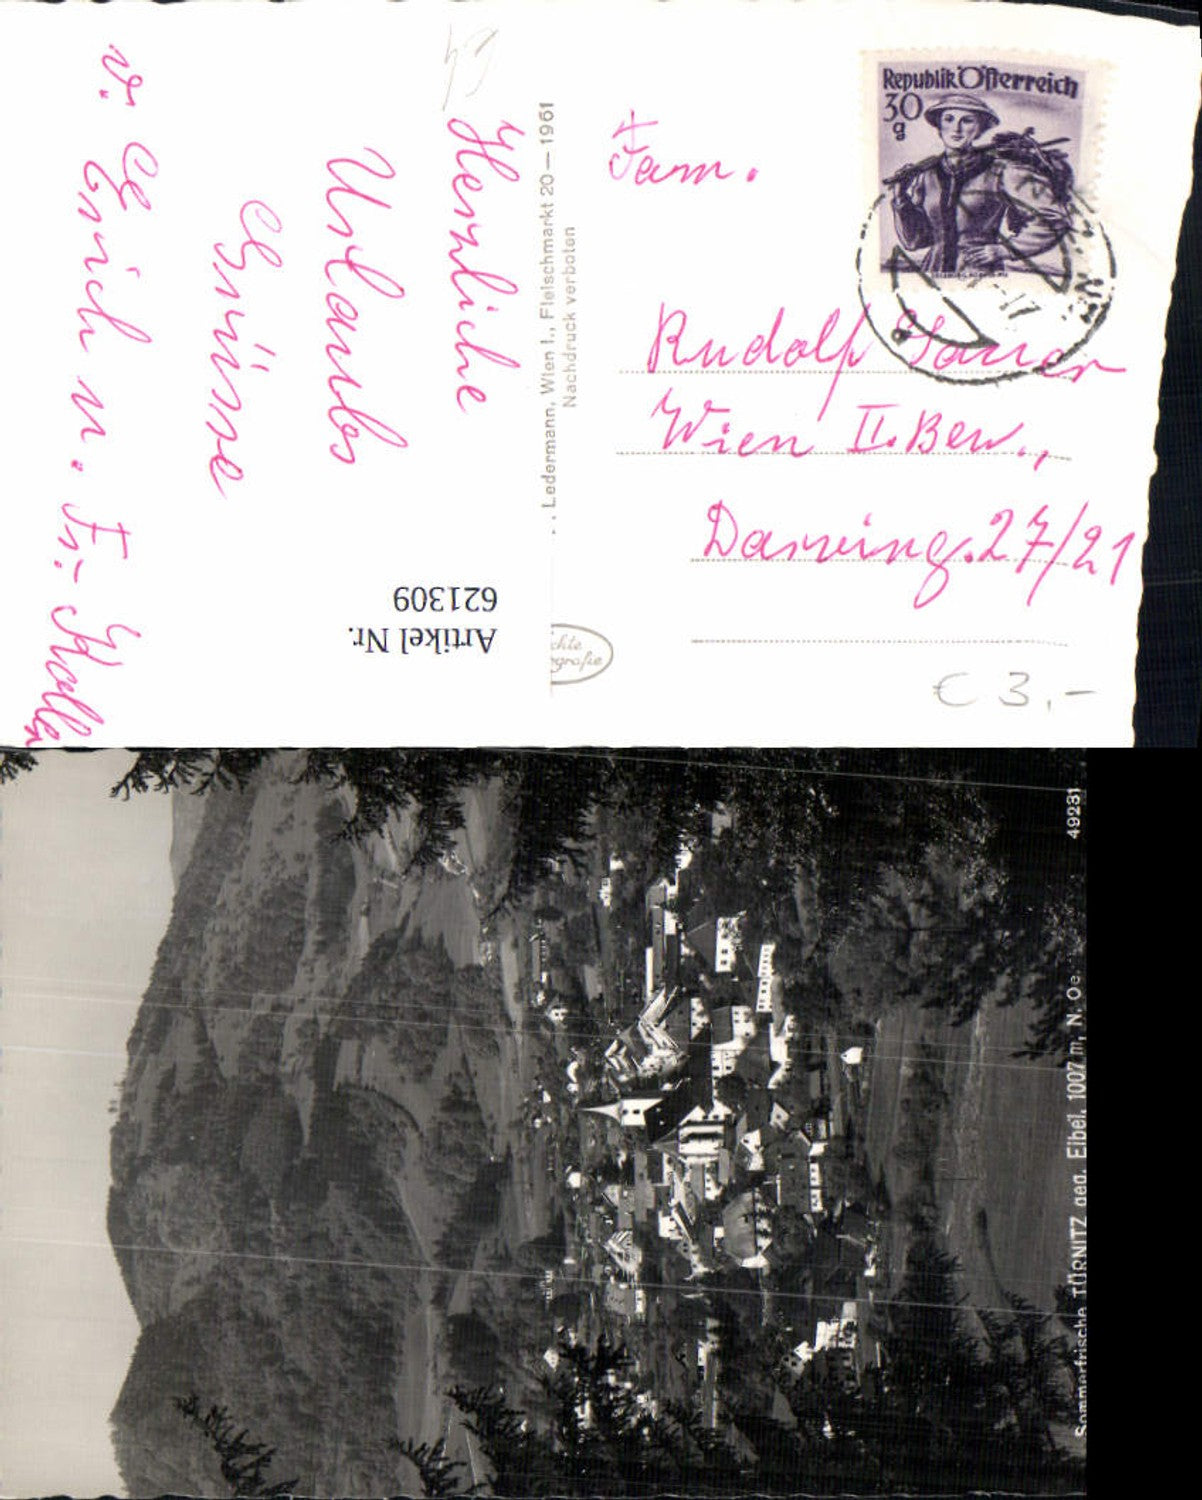 Republik Österreich
30
g
Fam.
Rudolf Sauer
Wien II. Bez.,
Darwing. 27/21
€ 3,-
Herzliche
Urlaubs
Grüsse
v. Erich u. Fr.
Ledermann, Wien I., Fleischmarkt 20 — 1961
Nachdruck verboten
Artikel Nr.
621309
Sommerfrische TÜRNITZ geg. Eibel, 1007 m, N. Oe.
49231